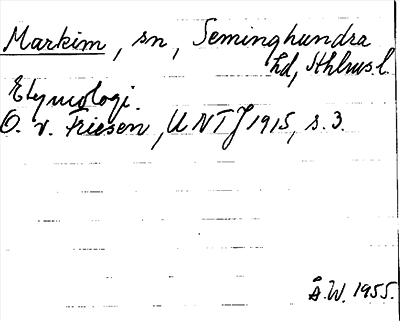 Markim, sn, Seminghundra
hd, Sthlms l.
Etymologi.
O. v. Friesen, UNT J 1915, s. 3.
Å.W. 1955.